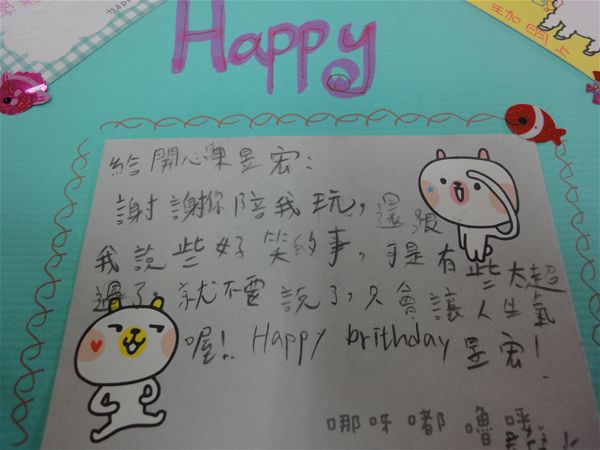 Happy
給開心果昱宏：
謝謝你陪我玩，還跟
我說些好笑的事，可是有些太超
過了，就不要說了，只會讓人生氣
喔！！Happy brithday 昱宏！
哪呀嘟嚕